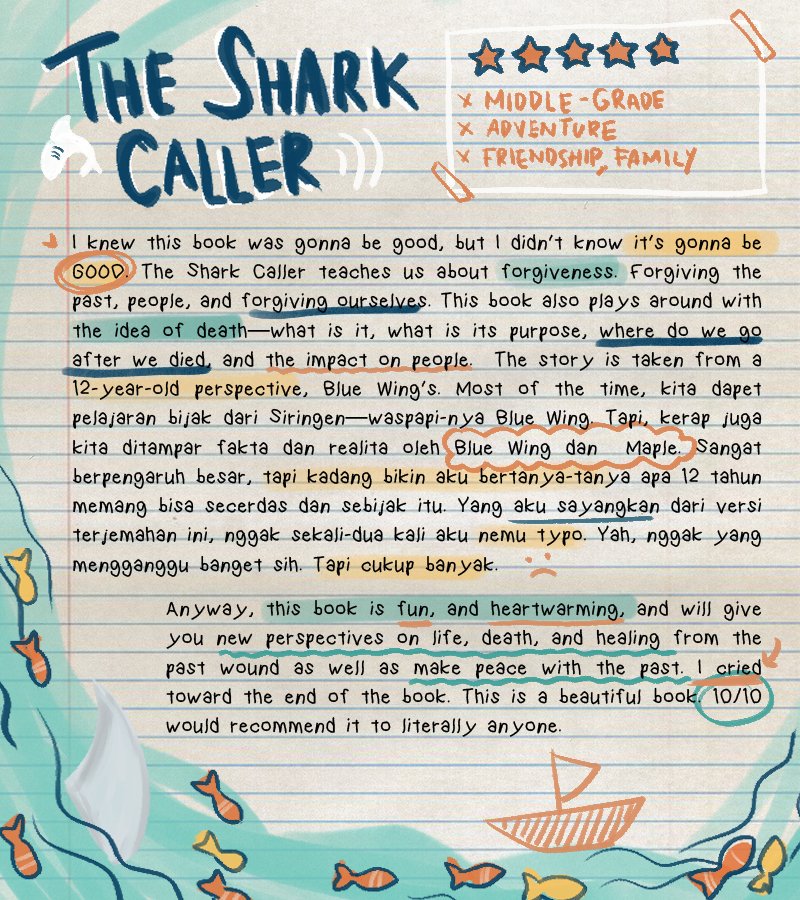 THE SHARK
CALLER
x MIDDLE-GRADE
x ADVENTURE
x FRIENDSHIP, FAMILY
I knew this book was gonna be good, but I didn't know it's gonna be
GOOD. The Shark Caller teaches us about forgiveness. Forgiving the
past, people, and forgiving ourselves. This book also plays around with
the idea of death—what is it, what is its purpose, where do we go
after we died, and the impact on people. The story is taken from a
12-year-old perspective, Blue Wing's. Most of the time, kita dapet
pelajaran bijak dari Siringen—waspapi-nya Blue Wing. Tapi, kerap juga
kita ditampar fakta dan realita oleh Blue Wing dan Maple. Sangat
berpengaruh besar, tapi kadang bikin aku bertanya-tanya apa 12 tahun
memang bisa secerdas dan sebijak itu. Yang aku sayangkan dari versi
terjemahan ini, nggak sekali-dua kali aku nemu typo. Yah, nggak yang
mengganggu banget sih. Tapi cukup banyak.
Anyway, this book is fun, and heartwarming, and will give
you new perspectives on life, death, and healing from the
past wound as well as make peace with the past. I cried
toward the end of the book. This is a beautiful book. 10/10
would recommend it to literally anyone.